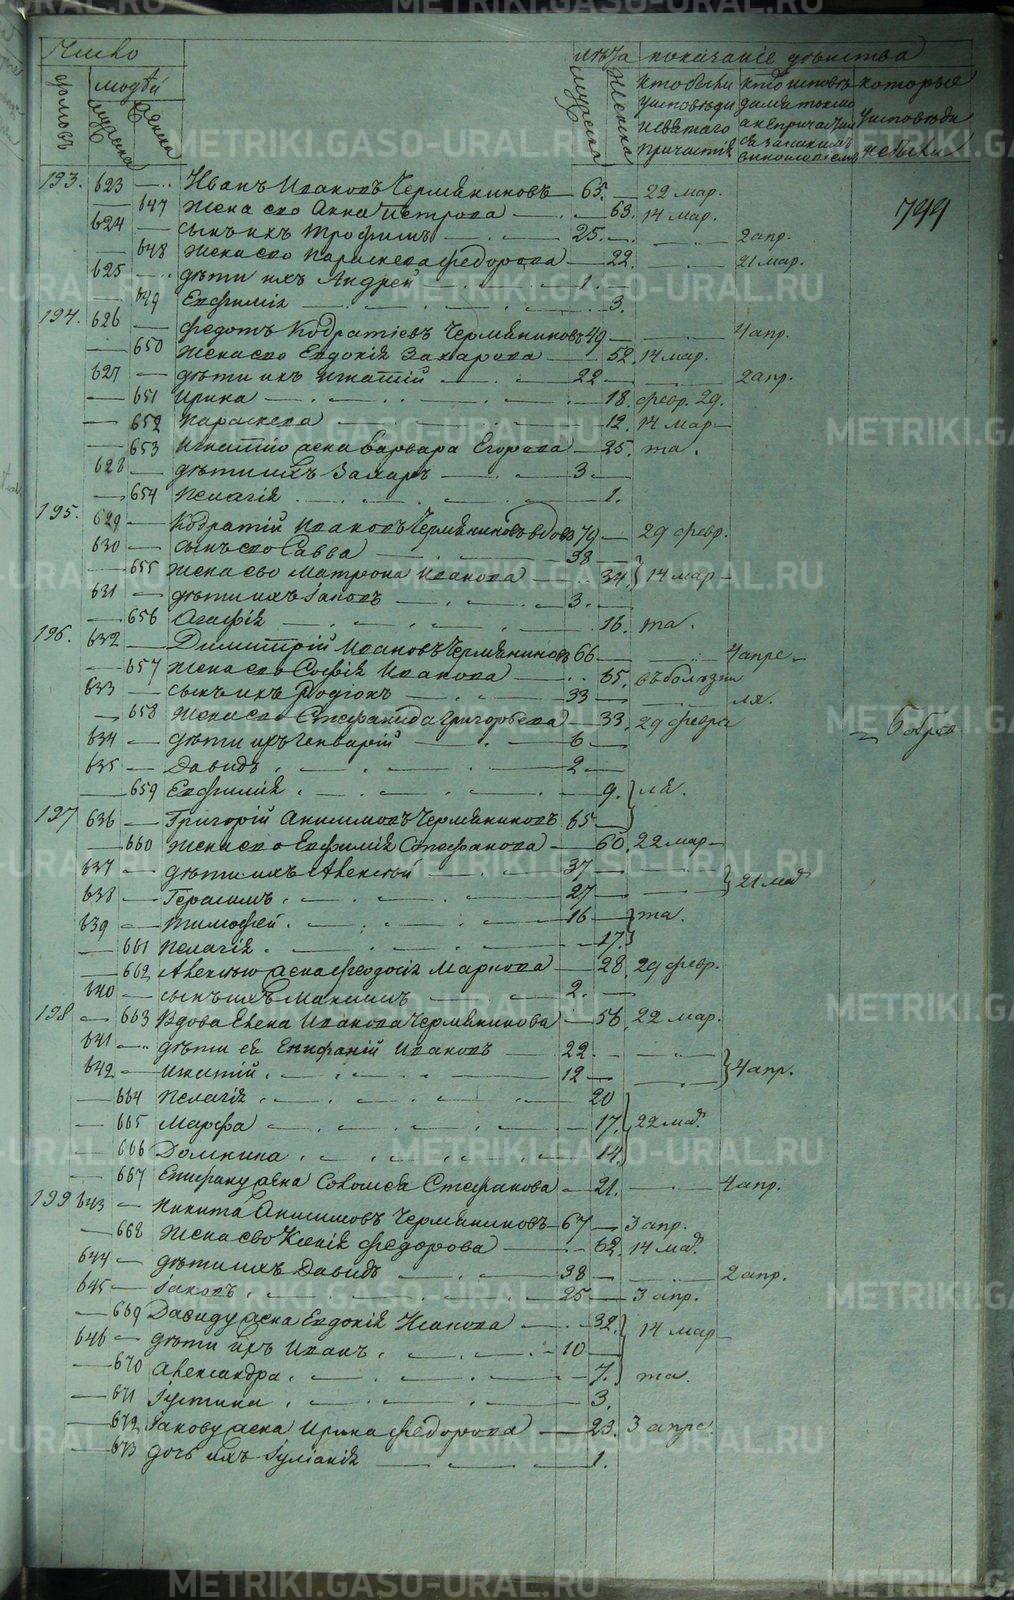 Число лѣта показаніе дѣйства
домовъ людей мужска женска мужска женска
кто были у исповѣди и святаго причастія
которые у исповѣди не были
799
193. 623 — Иванъ Ивановъ Чермяниновъ — 65. — 22 мар.
647 жена его Анна Петрова — 63. 14 мар.
624 — сынъ ихъ Трофимъ — 25. — 2 апр.
648 жена его Параскева Федорова — 22. — 21 мар.
625 — дѣти ихъ Андрей — 1.
649 Евфимія — 3.
194. 626 — Федотъ Кодратіевъ Чермяниновъ 49 — 4 апр.
650 жена его Евдокія Захарова — 52. 14 мар.
627 — дѣти ихъ Игнатій — 22 — 2 апр.
651 Ирина — 18. февр. 29.
652 Параскева — 12. 14 мар —
653 Игнатію жена Варвара Егорова — 25. та.
628 — дѣти ихъ Захаръ — 3 —
654 Пелагія — 1.
195. 629 — Кодратій Ивановъ Чермяниновъ вдовъ 79 — 29 февр.
630 — сынъ его Савва — 38 —
655 жена его Матрона Иванова — 34. } 14 мар —
631 — дѣти ихъ Іаковъ — 3. —
656 Агафія — 16. та.
196. 632 — Димитрій Ивановъ Чермяниновъ 66 — 4 апре —
657 жена его Софія Иванова — 65. въ болѣзни
633 — сынъ ихъ Родіонъ — 33 — ля.
658 жена его Стефанида Григорьева — 33. 29 февра
634 — дѣти ихъ Генварій — 6 —
635 — Давидъ — 2 —
659 Евфимія — 9. } ля.
197 636 — Григорій Анисимовъ Чермяниновъ 65 —
660 жена его Евфимія Стефанова — 60. 22 мар —
637 — дѣти ихъ Алексѣй — 37 —
638 — Герасимъ — 27 — } 21 мар
639 — Тимофей — 16 — } та.
661 Пелагія — 17.
662 Алексѣю жена Феодосія Маркова — 28. 29 февр.
640 — сынъ ихъ Максимъ — 2. —
198 — 663 Вдова Елена Иванова Чермянинова — 56. 22 мар.
641 — дѣти ея Епифаній Ивановъ — 22. —
642 — Игнатій — 12 — } 4 апр.
664 Пелагія — 20
665 Марфа — 17. } 22 мар.
666 Домникия — 14.
667 Епифану жена Соломея Стефанова — 21. — 4 апр.
199 643 — Никита Анисимовъ Чермяниновъ — 67 — 3 апр.
668 жена его Ксенія Федорова — 62. 14 мар.
644 — дѣти ихъ Давидъ — 38 — 2 апр.
645 — Іаковъ — 25 — 3 апр.
669 Давиду жена Евдокія Исакова — 32. } 14 мар —
646 — дѣти ихъ Иванъ — 10 —
670 Александра — 7. та.
671 Іустина — 3.
672 Іакову жена Ирина Федорова — 23. 3 апре.
673 дочь ихъ Іуліанія — 1.
METRIKI.GASO-URAL.RU